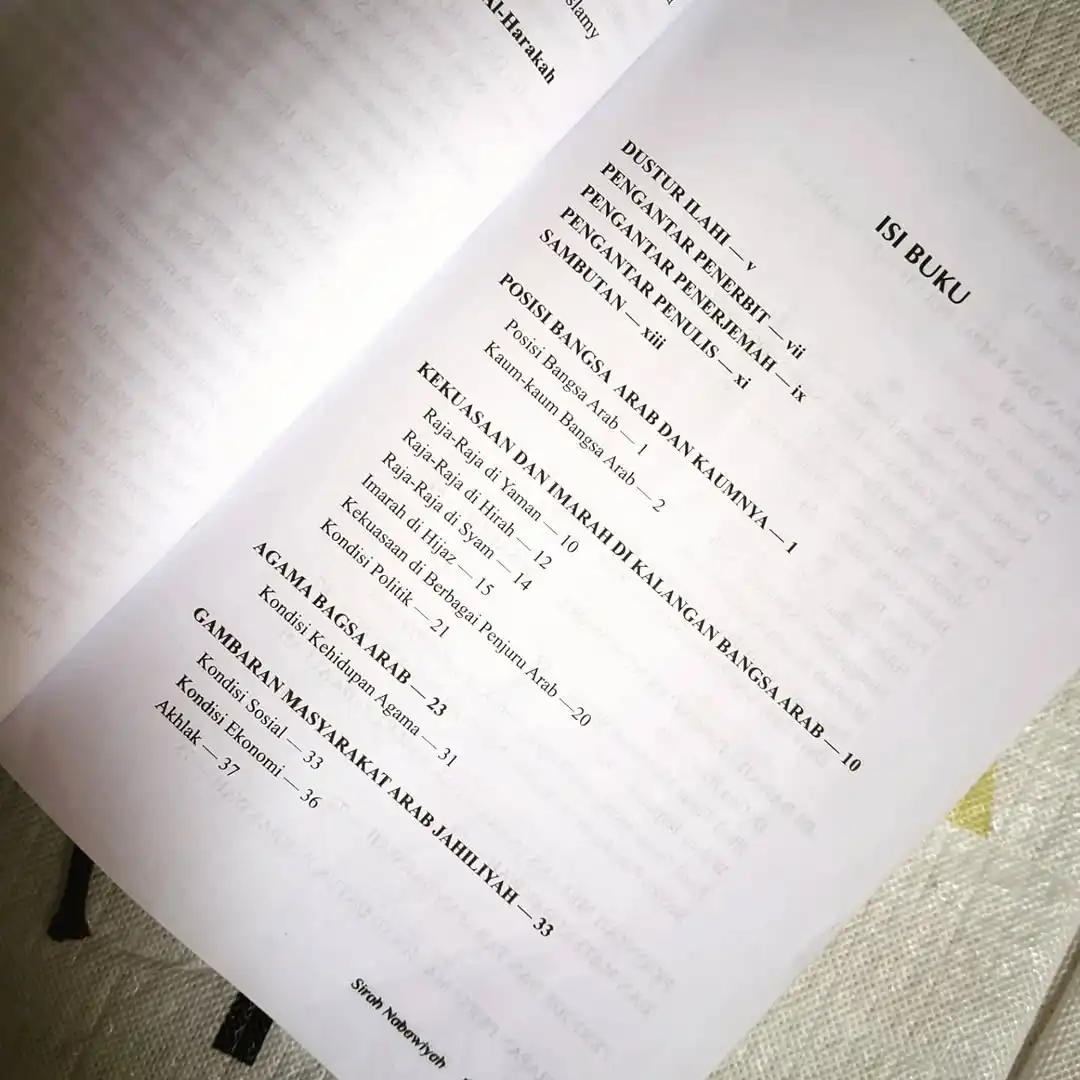 slamy
Al-Harakah
ISI BUKU
DUSTUR ILAHI — v
PENGANTAR PENERBIT — vii
PENGANTAR PENERJEMAH — ix
PENGANTAR PENULIS — xi
SAMBUTAN — xiii
POSISI BANGSA ARAB DAN KAUMNYA — 1
Posisi Bangsa Arab — 1
Kaum-kaum Bangsa Arab — 2
KEKUASAAN DAN IMARAH DI KALANGAN BANGSA ARAB — 10
Raja-Raja di Yaman — 10
Raja-Raja di Hirah — 12
Raja-Raja di Syam — 14
Imarah di Hijaz — 15
Kekuasaan di Berbagai Penjuru Arab —20
Kondisi Politik — 21
AGAMA BAGSA ARAB — 23
Kondisi Kehidupan Agama — 31
GAMBARAN MASYARAKAT ARAB JAHILIYAH — 33
Kondisi Sosial — 33
Kondisi Ekonomi — 36
Akhlak — 37
Sirah Nabawiyah